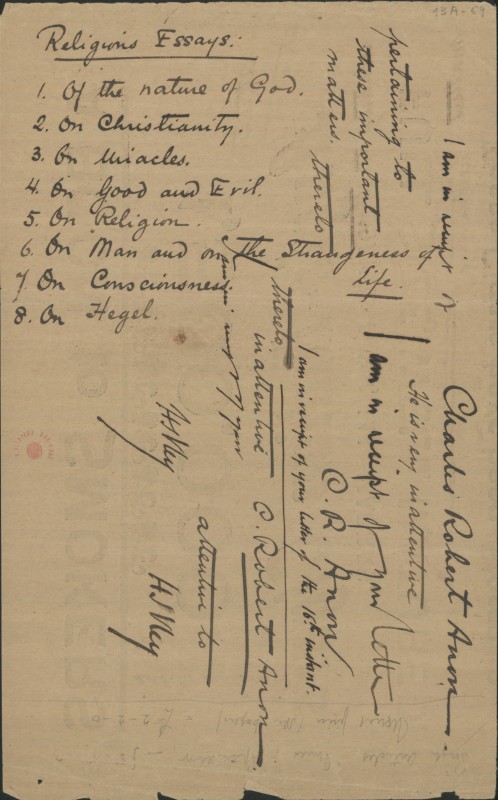 13A - 69
Religious Essays:
1. Of the nature of God.
2. On Christianity.
3. On Miracles.
4. On Good and Evil.
5. On Religion.
6. On Man and on the Strangeness of
Life.
7. On Consciousness.
8. On Hegel.
I am in receipt of
pertaining to
these important
matters. thereto
Charles Robert Anon.
He is very inattentive
I am in receipt of your letter
C. R. Anon
I am in receipt of your letter of the 16th instant.
thereto
inattentive C. Robert Anon.
attentive to